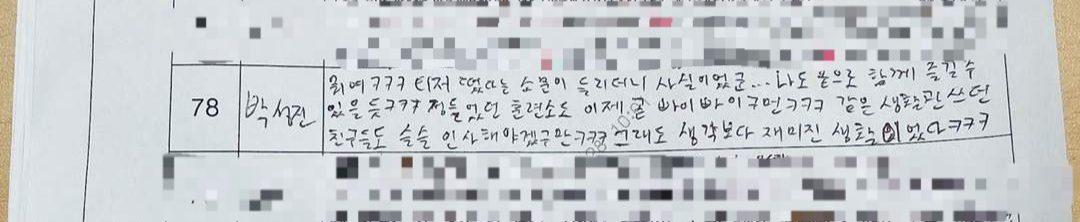 78
박성진
희예ㅋㅋㅋ 티저 떴다는 소문이 들리더니 사실이었군... 나도 폰으로 함께 즐길수
있을 듯ㅋㅋㅋ 정들었던 훈련소도 이제 곧 바이바이구먼ㅋㅋㅋ 같은 생활관 쓰던
친구들도 슬슬 인사해야겠구만ㅋㅋㅋ 그래도 생각보다 재미진 생활이었다ㅋㅋㅋ